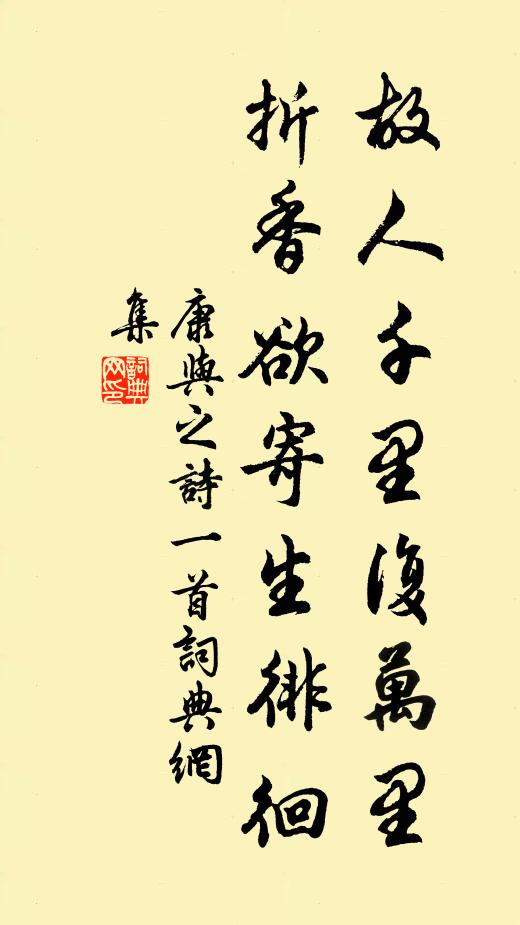 故人千里復萬里
折香欲寄生徘徊
康與之詩一首詞典網
集
詞典
网印